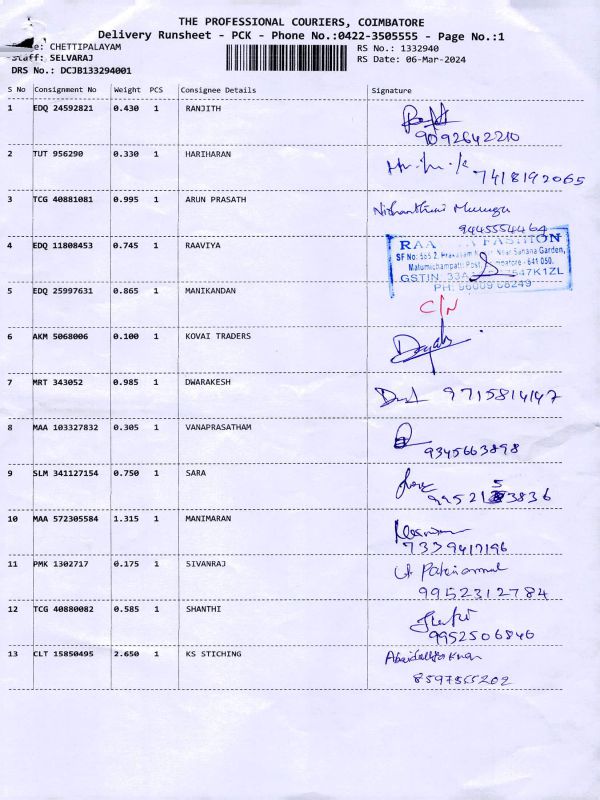 THE PROFESSIONAL COURIERS, COIMBATORE
Delivery Runsheet - PCK - Phone No.:0422-3505555 - Page No.:1
CHETTIPALAYAM RS No.: 1332940
Staff: SELVARAJ RS Date: 06-Mar-2024
DRS No.: DCJB133294001
S No Consignment No Weight PCS Consignee Details Signature
1 EDQ 24592821 0.430 1 RANJITH
9092642210
2 TUT 956290 0.330 1 HARIHARAN
7418192065
3 TCG 40881081 0.995 1 ARUN PRASATH
9445554464
4 EDQ 11808453 0.745 1 RAAVIYA
RAA FASHION
SF No: 585 2, Near Sahana Garden,
Malumichampatti Post, - 641 050.
GSTIN: 33A 547K1ZL
PH: 96009 68249
5 EDQ 25997631 0.865 1 MANIKANDAN C/N
6 AKM 5068006 0.100 1 KOVAI TRADERS
7 MRT 343052 0.985 1 DWARAKESH 9715814147
8 MAA 103327832 0.305 1 VANAPRASATHAM
9345663898
9 SLM 341127154 0.750 1 SARA
10 MAA 572305584 1.315 1 MANIMARAN
7339417196
11 PMK 1302717 0.175 1 SIVANRAJ
9952312784
12 TCG 40880082 0.585 1 SHANTHI
9952506846
13 CLT 15850495 2.650 1 KS STICHING
8597555202